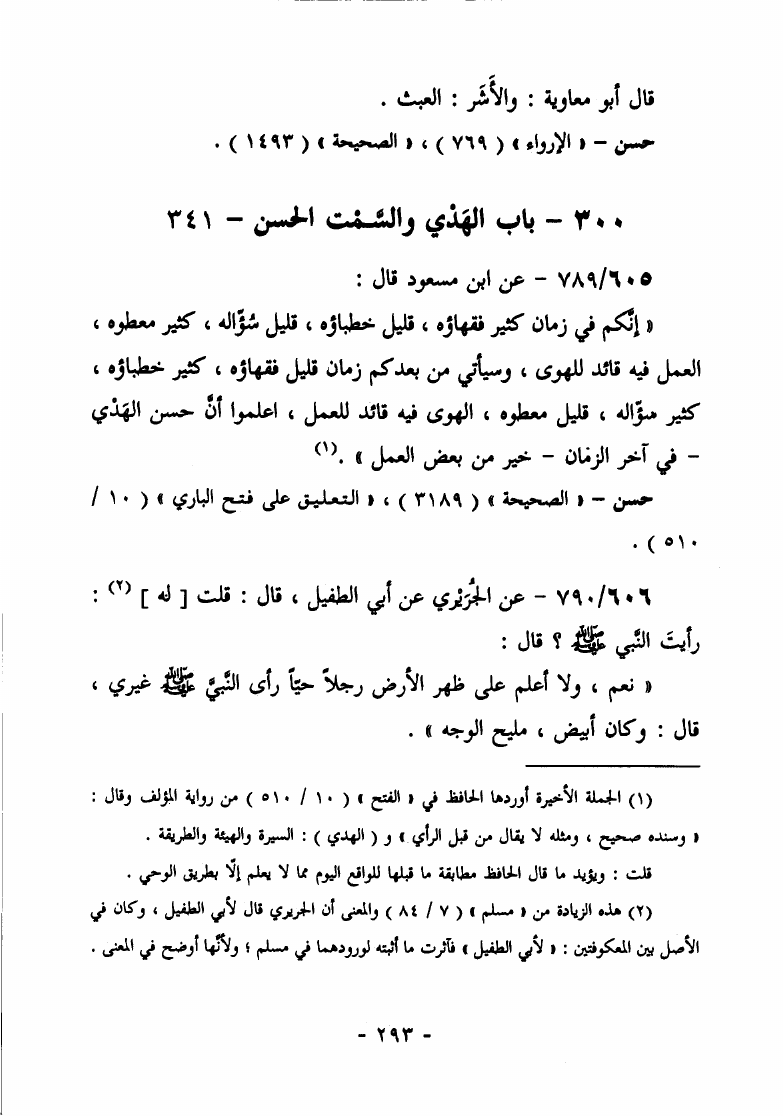 قال أبو معاوية : والأَشَر : العبث .
حسن – « الإرواء » ( ٧٦٩ ) ، « الصحيحة » ( ١٤٩٣ ) .
٣٠٠ – باب الهَدْي والسَّمْت الحسن – ٣٤١
٧٨٩/٦٠٥ – عن ابن مسعود قال :
« إنَّكم في زمان كثير فقهاؤه ، قليل خطباؤه ، قليل سُؤَّاله ، كثير معطوه ،
العمل فيه قائد للهوى ، وسيأتي من بعدكم زمان قليل فقهاؤه ، كثير خطباؤه ،
كثير سؤَّاله ، قليل معطوه ، الهوى فيه قائد للعمل ، اعلموا أنَّ حسن الهَدْي
– في آخر الزمان – خير من بعض العمل » .(١)
حسن – « الصحيحة » ( ٣١٨٩ ) ، « التعليق على فتح الباري » ( ١٠ /
٥١٠ ) .
٧٩٠/٦٠٦ – عن الجُرَيْري عن أبي الطفيل ، قال : قلت [ له ] (٢) :
رأيتَ النَّبي ﷺ ؟ قال :
« نعم ، ولا أعلم على ظهر الأرض رجلاً حيّاً رأى النَّبيَّ ﷺ غيري ،
قال : وكان أبيض ، مليح الوجه » .
(١) الجملة الأخيرة أوردها الحافظ في « الفتح » ( ١٠ / ٥١٠ ) من رواية المؤلف وقال :
« وسنده صحيح ، ومثله لا يقال من قبل الرأي » و ( الهدي ) : السيرة والهيئة والطريقة .
قلت : ويؤيد ما قال الحافظ مطابقة ما قبلها للواقع اليوم مما لا يعلم إلَّا بطريق الوحي .
(٢) هذه الزيادة من « مسلم » ( ٧ / ٨٤ ) والمعنى أن الجريري قال لأبي الطفيل ، وكان في
الأصل بين المعكوفتين : « لأبي الطفيل » فآثرت ما أثبته لورودهما في مسلم ؛ ولأنَّها أوضح في المعنى .
- ٢٩٣ -